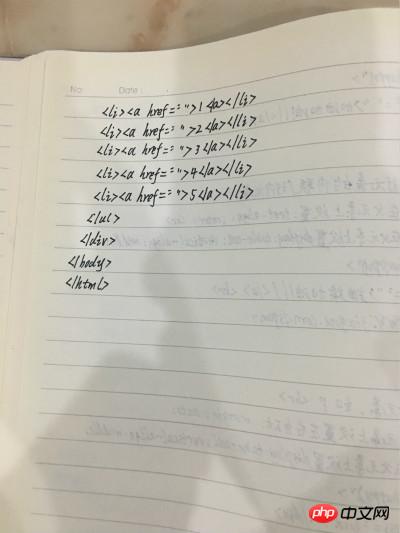 No: Date:
<li><a href="">1<a></li>
<li><a href="">2<a></li>
<li><a href="">3<a></li>
<li><a href="">4</a></li>
<li><a href="">5</a></li>
</ul>
</div>
</body>
</html>
php 中文网